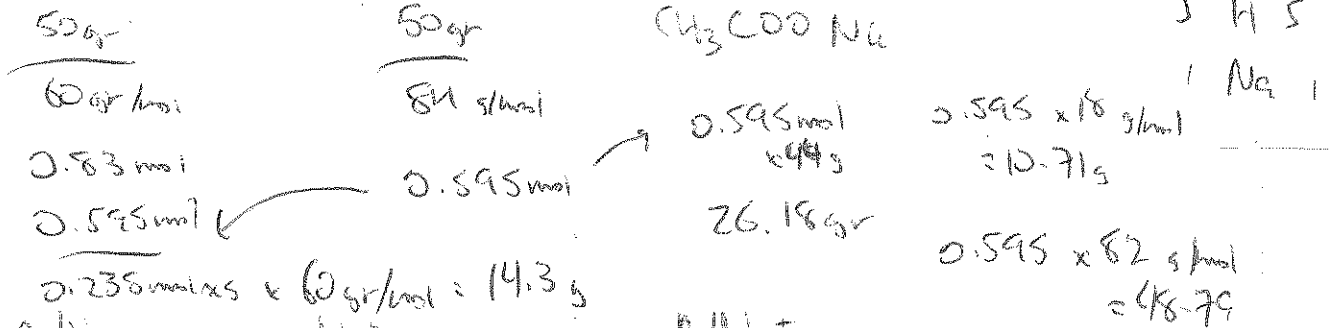 50gr
60gr/mol
0.83 mol
0.595mol
0.235 molxs x 60gr/mol = 14.3 g
50gr
84 g/mol
0.595mol
CH3COO Na
0.595mol
x44g
26.18gr
0.595 x 18 g/mol
= 10.71g
0.595 x 82 g/mol
= 48.79
H 5
1 Na 1